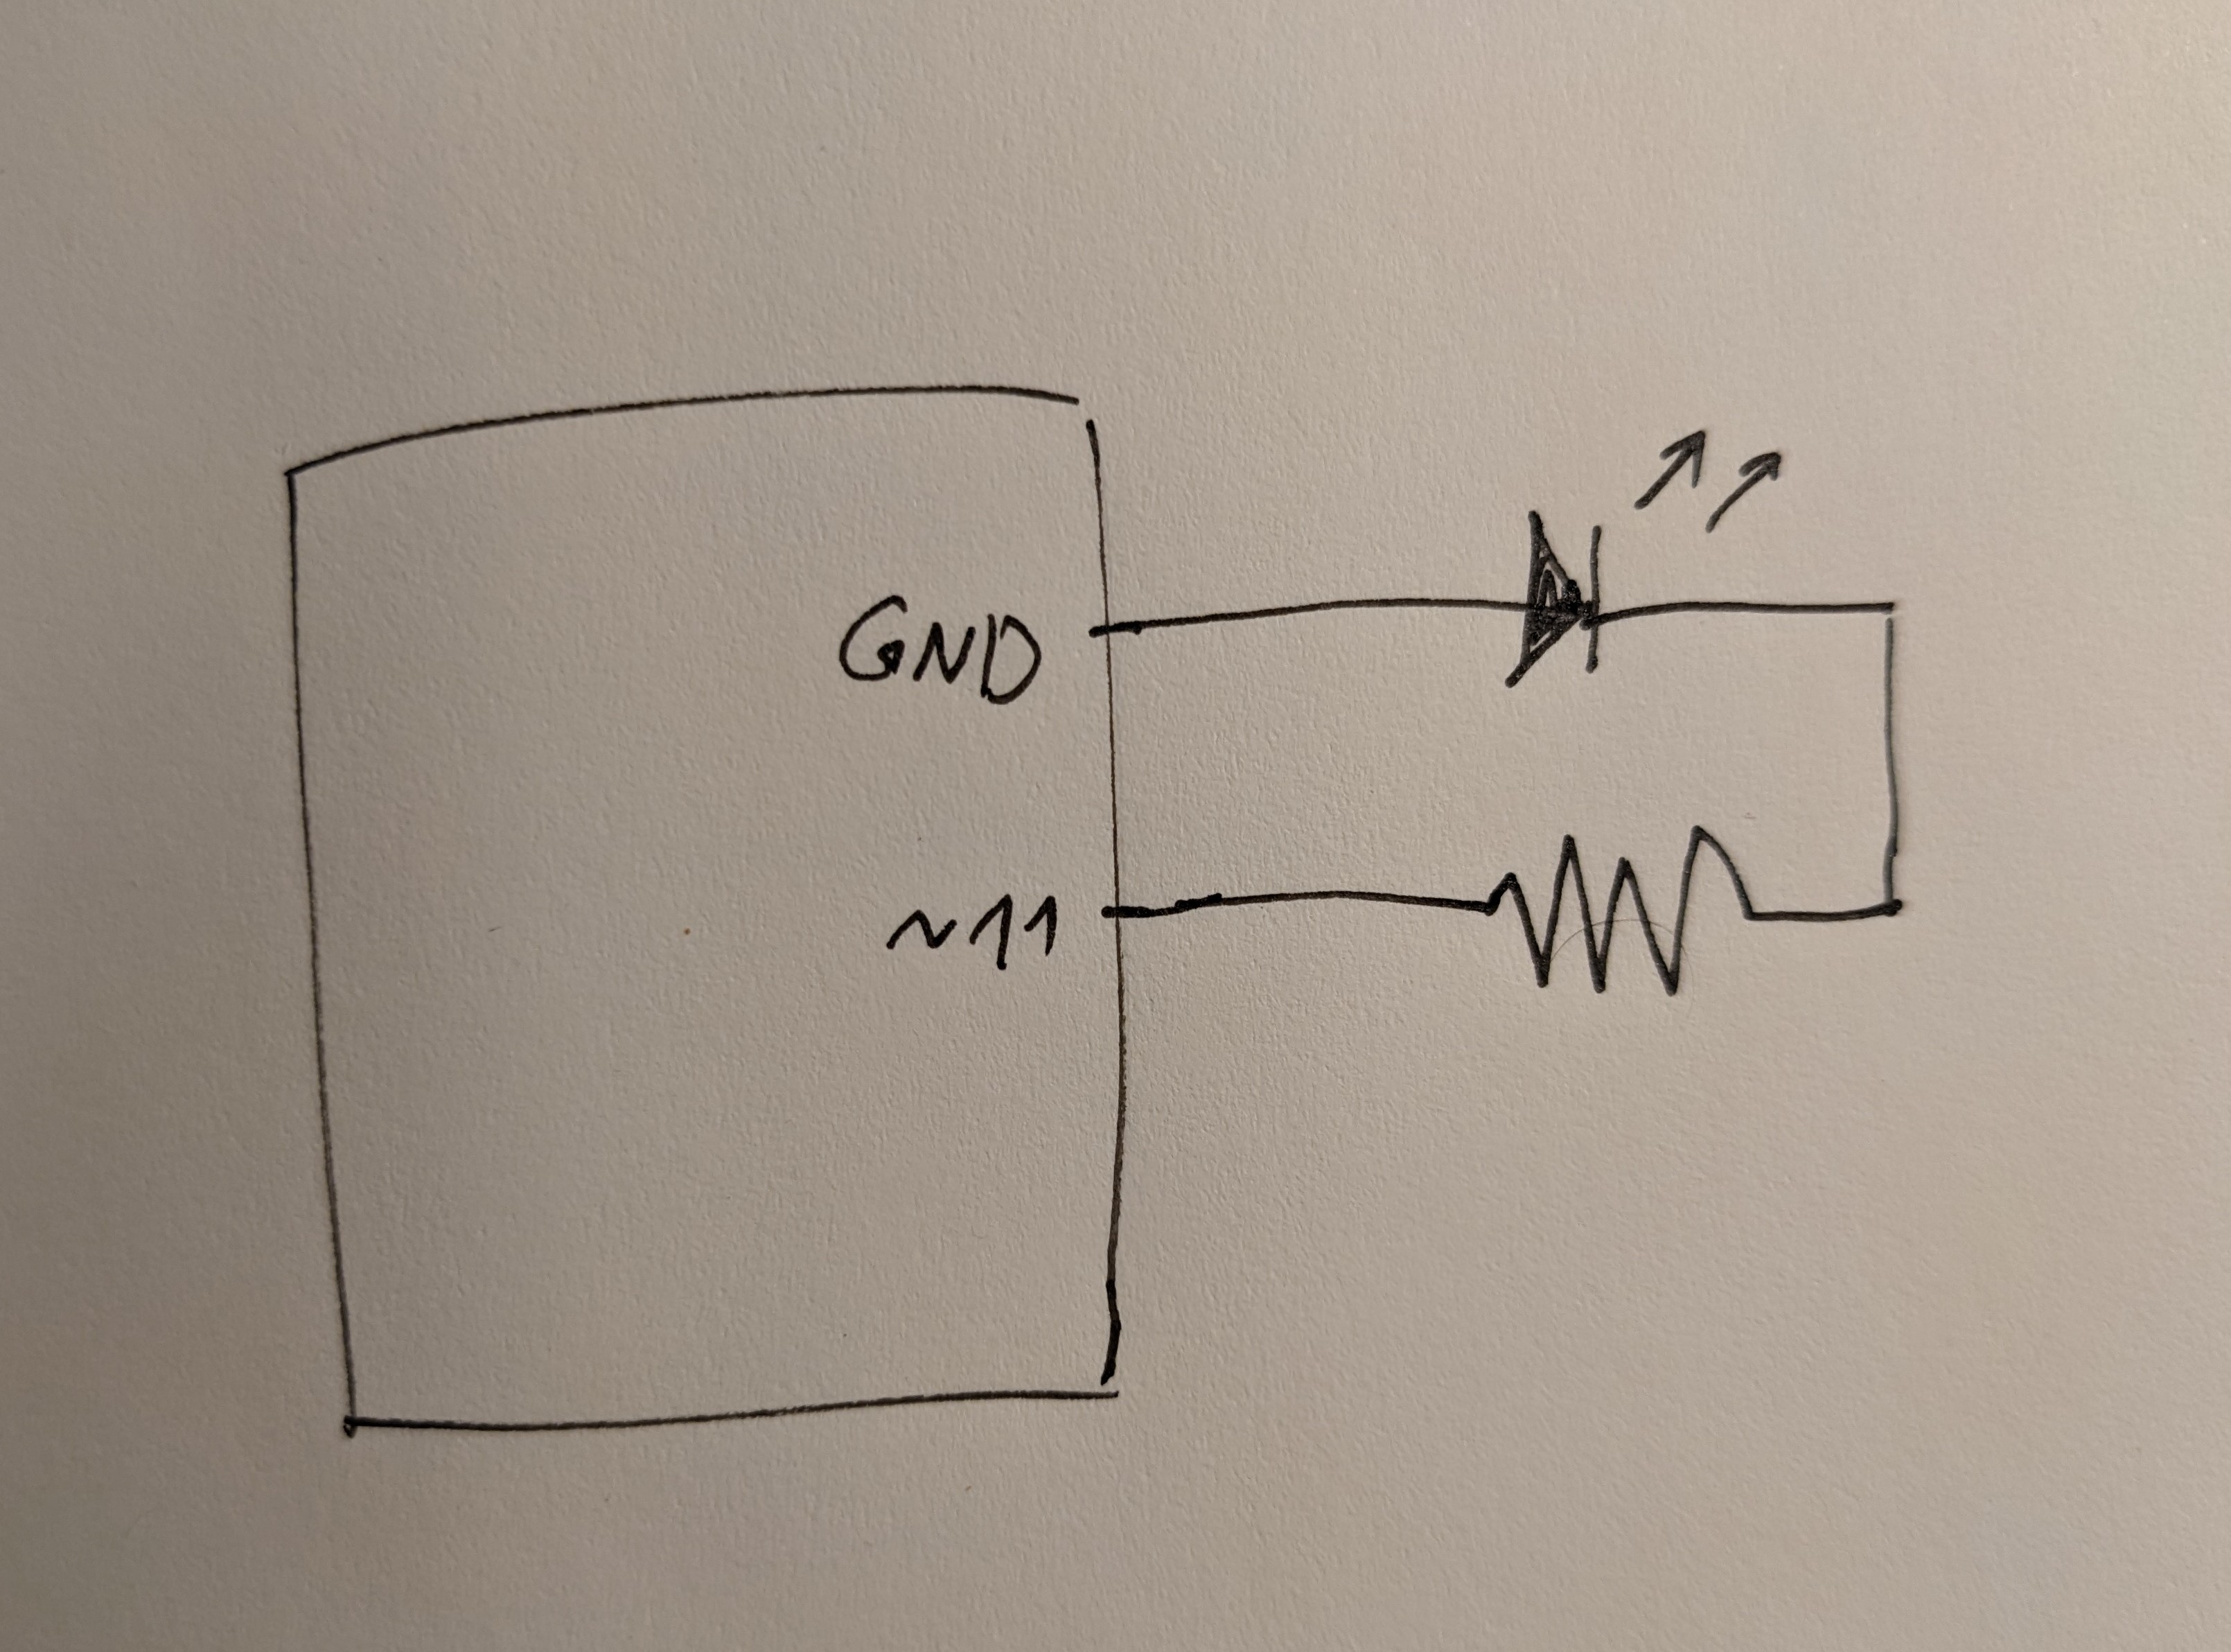 GND
~11